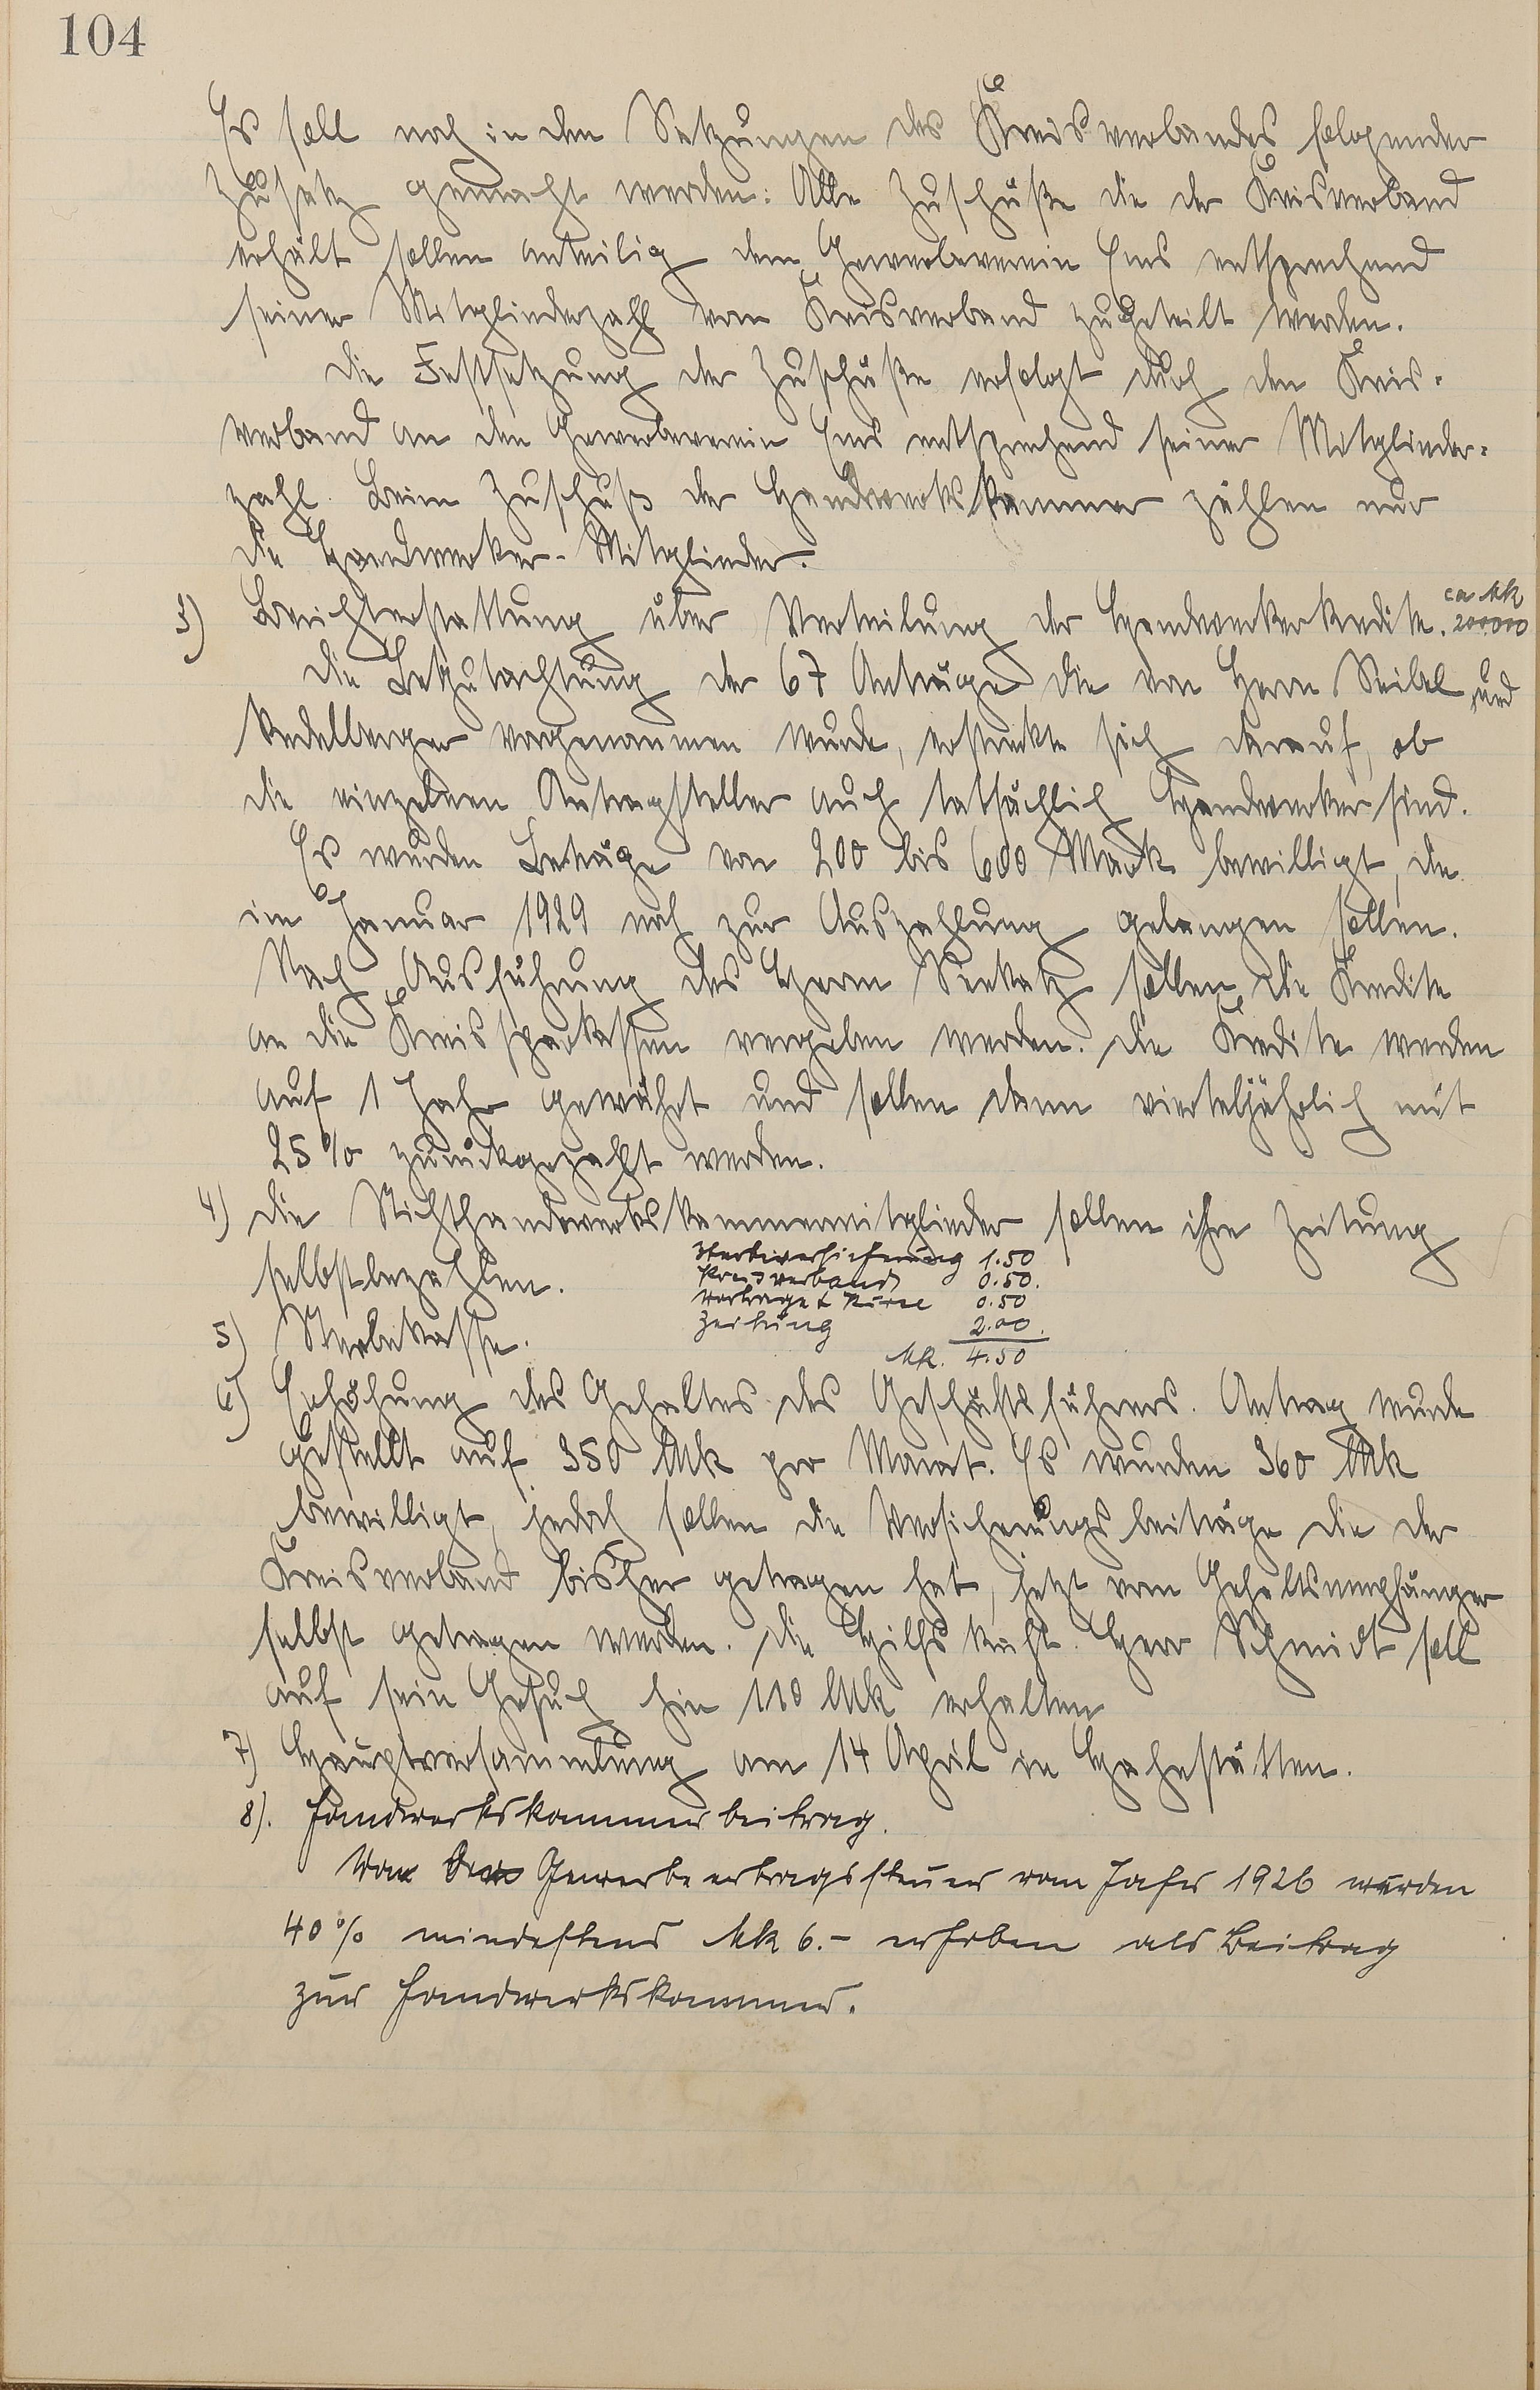 104
Es soll noch in den Satzungen des Kreisverbandes folgender
Zusatz gemacht werden: Alle Zuschüße die der Kreisverband
erhält sollen anteilig dem Gewerbeverein Ems entsprechend
seiner Mitgliederzahl vom Kreisverband zugeteilt werden.
Die Festsetzung der Zuschüße erfolgt durch den Kreis-
verband an den Gewerbeverein Ems entsprechend seiner Mitglieder-
zahl. Beim Zuschuß der Handwerkskammer zählen nur
die Handwerker-Mitglieder.
3) Berichterstattung über Verteilung der Handwerkerkredite. ca Mk 200000
Die Begutachtung der 67 Anträge die von Herrn Seibel und
vorgenommen wurde, erstreckte sich darauf, ob
die einzelnen Antragsteller auch tatsächlich Handwerker sind.
Es wurden Beträge von 200 bis 600 Mark bewilligt, die
im Januar 1929 noch zur Auszahlung gelangen sollen.
Nach Ausführung des Herrn Seekatz sollen die Kredite
an die Kreissparkassen vergeben werden. Die Kredite werden
auf 1 Jahr gewährt und sollen dann vierteljährlich mit
25% zurückgezahlt werden.
4) Die Nichthandwerkskammermitglieder sollen ihre Zeitung
selbstbezahlen.
Sterbeversicherung 1.50
Kreisverband 0.50.
Vorträge & Kurse 0.50
Zeitung 2.00.
Mk. 4.50
5) Sterbekasse.
6) Erhöhung des Gehaltes des Geschäftsführers. Antrag wurde
gestellt auf 350 Mk pro Monat. Es wurden 360 Mk
bewilligt, jedoch sollen die Versicherungsbeiträge die der
Kreisverband bisher getragen hat, jetzt vom Gehaltsempfänger
selbst getragen werden. Die Hilfskraft Herr Schmidt soll
auf sein Gesuch hin 110 Mk erhalten
7) Hauptversammlung am 14 April in Hahnstätten.
8). Handwerkskammerbeitrag.
Von der Gewerbeertragssteuer vom Jahr 1926 werden
40% mindestens Mk 6.- erhoben als Beitrag
zur Handwerkskammer.